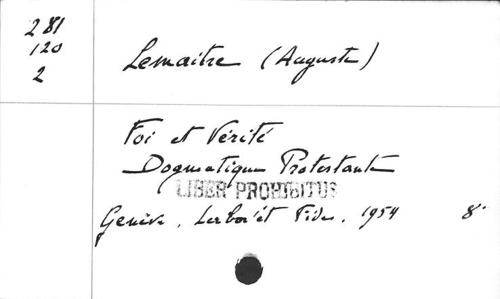 281
120
2
Lemaitre (Auguste)
Foi et Vérité
Dogmatique Protestante
LIBER PROHIBITUS
Genève, Labor et Fides, 1954 8°